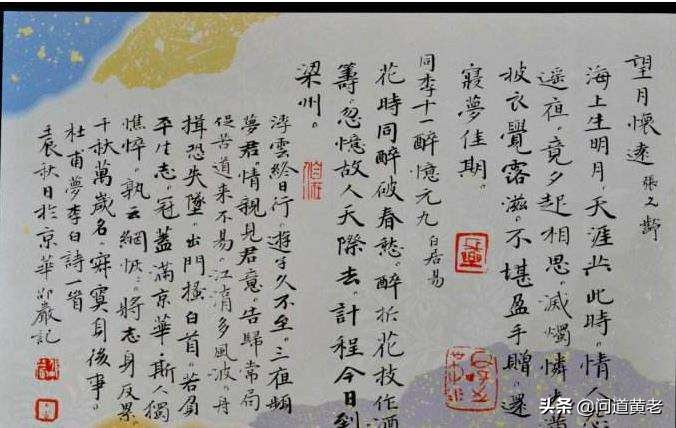 望月懷遠 張九齡
海上生明月。天涯共此時。情人怨
遥夜。竟夕起相思。滅燭憐光滿
披衣覺露滋。不堪盈手贈。還
寢夢佳期。
同李十一醉憶元九 白居易
花時同醉破春愁。醉折花枝作酒
籌。忽憶故人天際去。計程今日到
梁州。
浮雲終日行。遊子久不至。三夜頻
夢君。情親見君意。告歸常局
促苦道来不易。江湖多風波。舟
楫恐失墜。出門搔白首。若負
平生志。冠蓋滿京華。斯人獨
憔悴。孰云網恢。將老身反累。
千秋萬歲名。寂寞身後事。
杜甫夢李白詩一首
壬辰秋日於京華 記
头条 @问道黄老